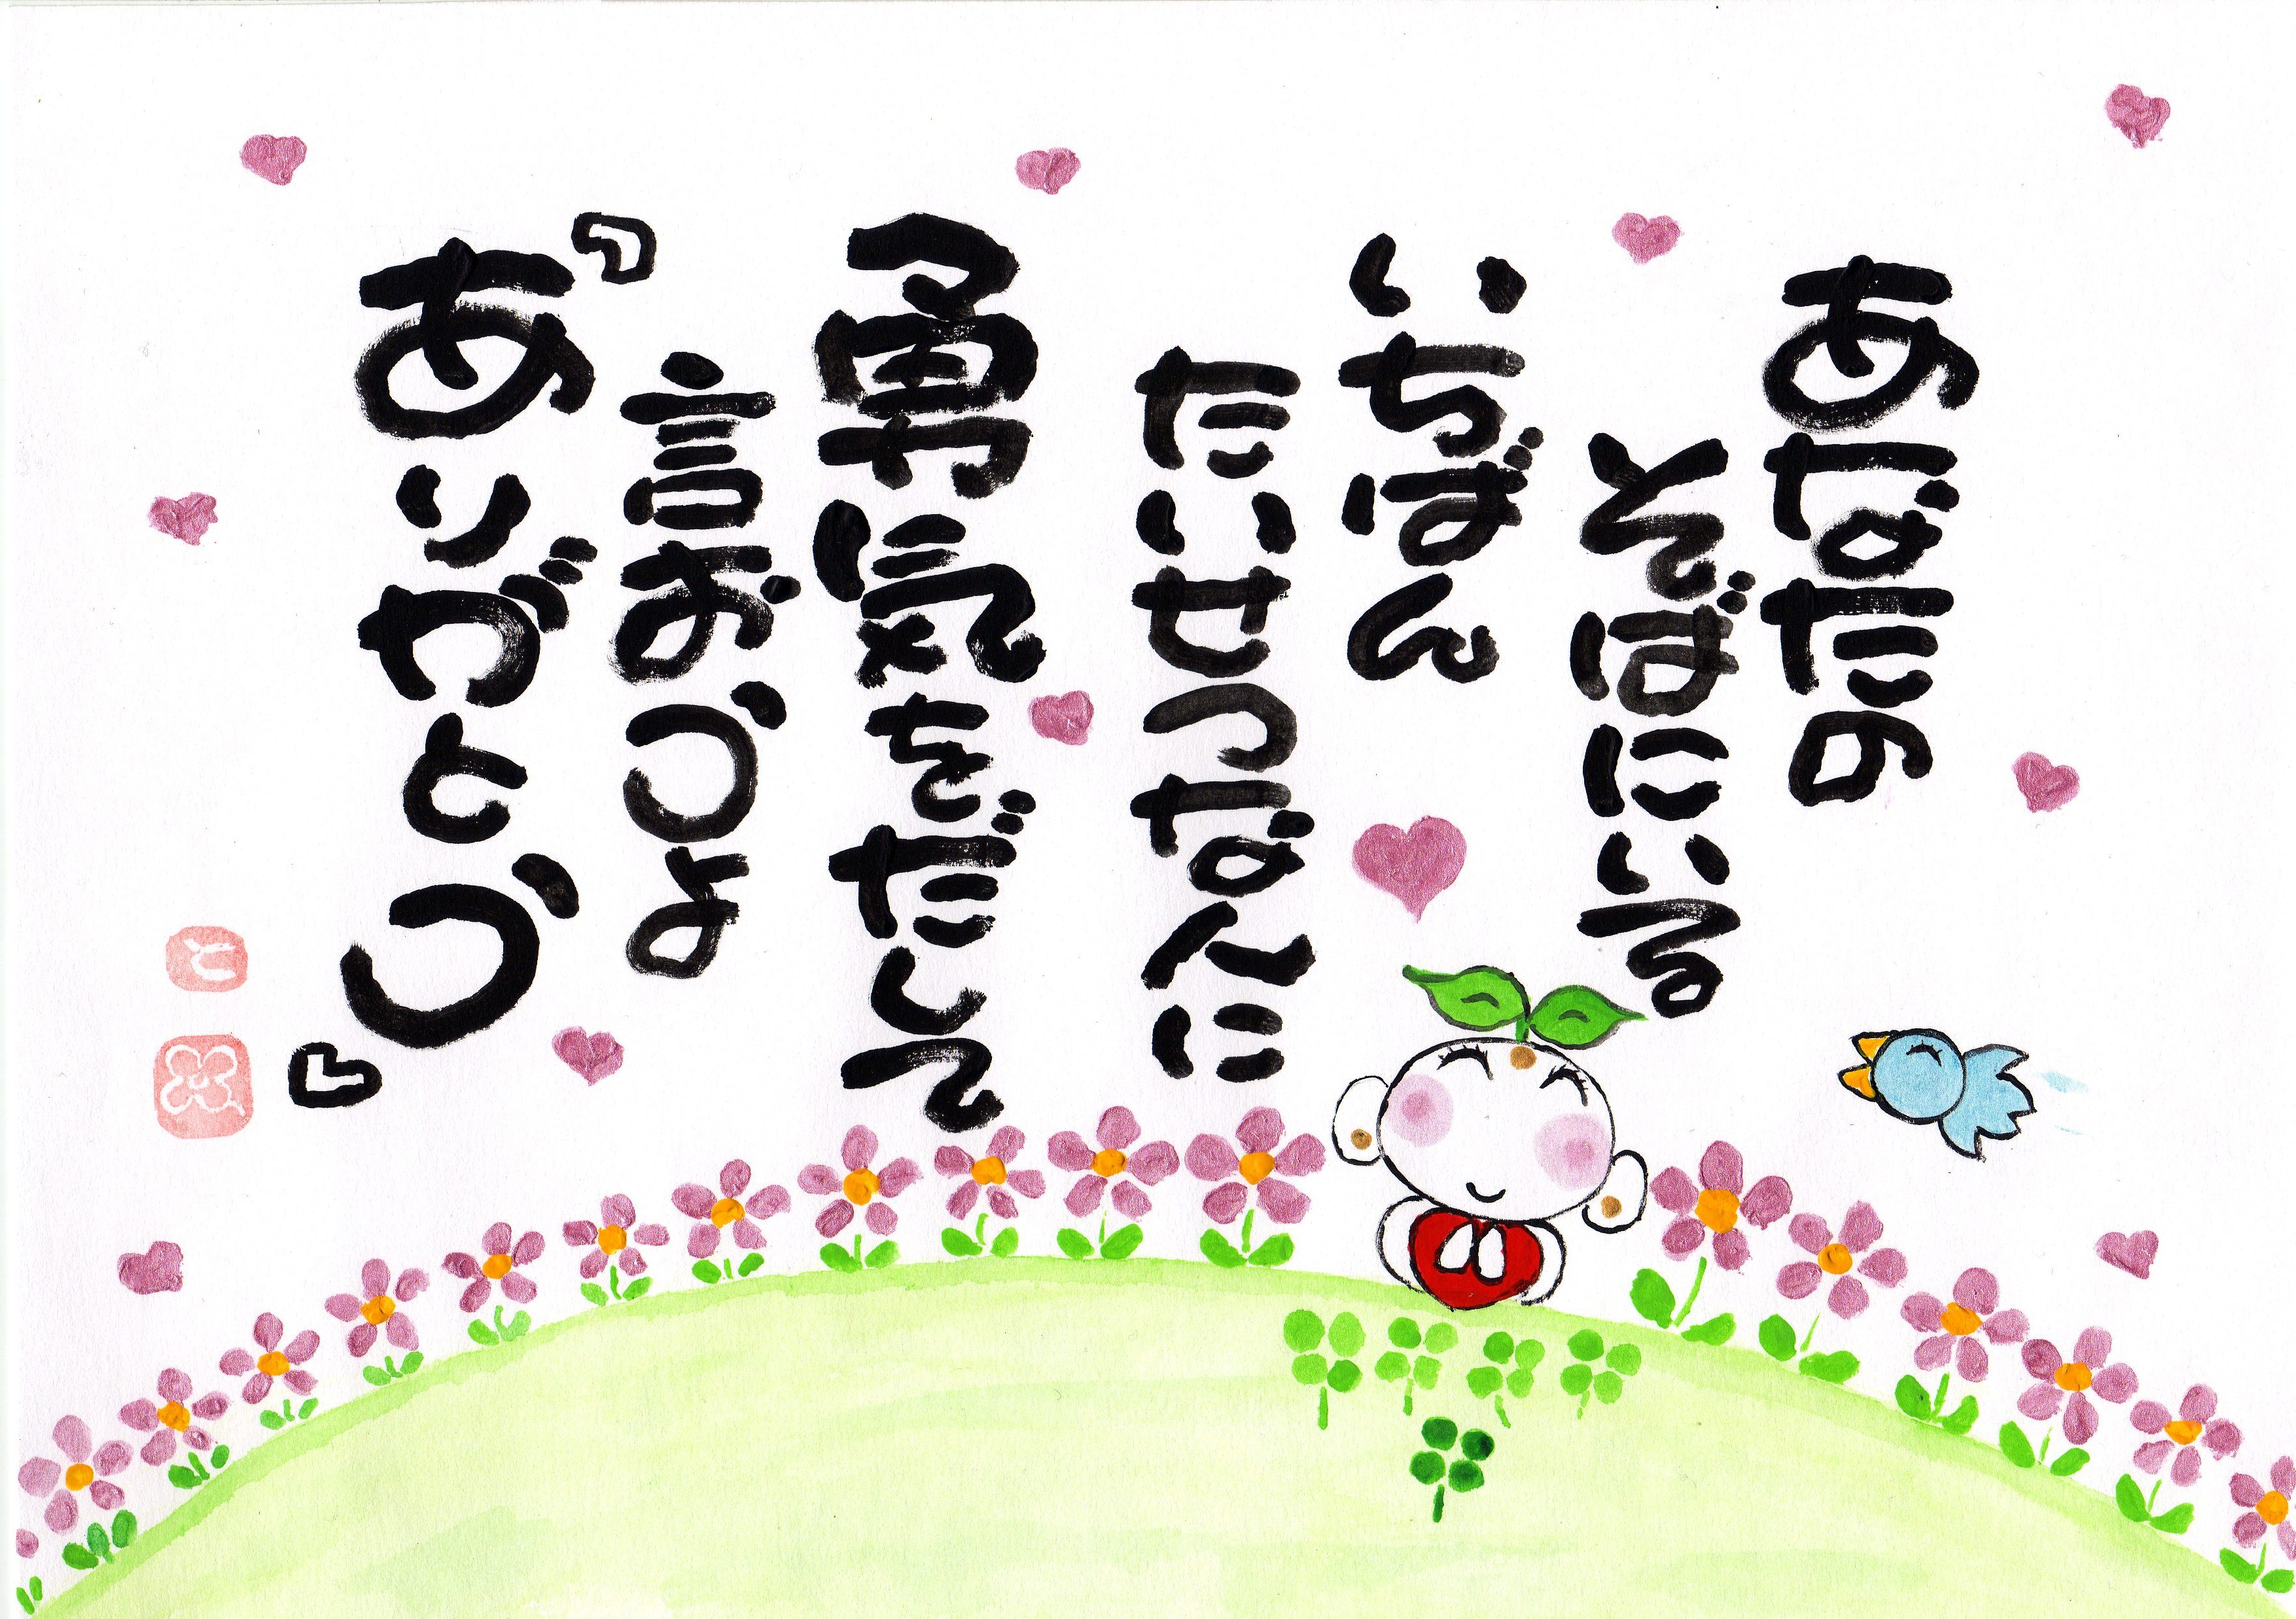 あなたの
そばにいる
いちばん
たいせつなんに
勇気をだして
言おうよ
『ありがとう』
と